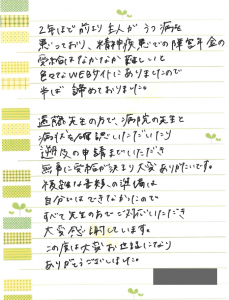 2年ほど前より主人がうつ病を
患っており、精神疾患での障害年金の
受給はなかなか難しいと
色々なWEBサイトにありましたので
半ば諦めておりました。
遠藤先生の方で、病院の先生と
病状を確認していただいたり
遡及の申請までしていただき
無事に受給が決まり大変ありがたいです。
複雑な書類の準備は
自分ではできなかったので
すべて先生の方でご対応いただき
大変感謝しています。
この度は大変お世話になり
ありがとうございました。